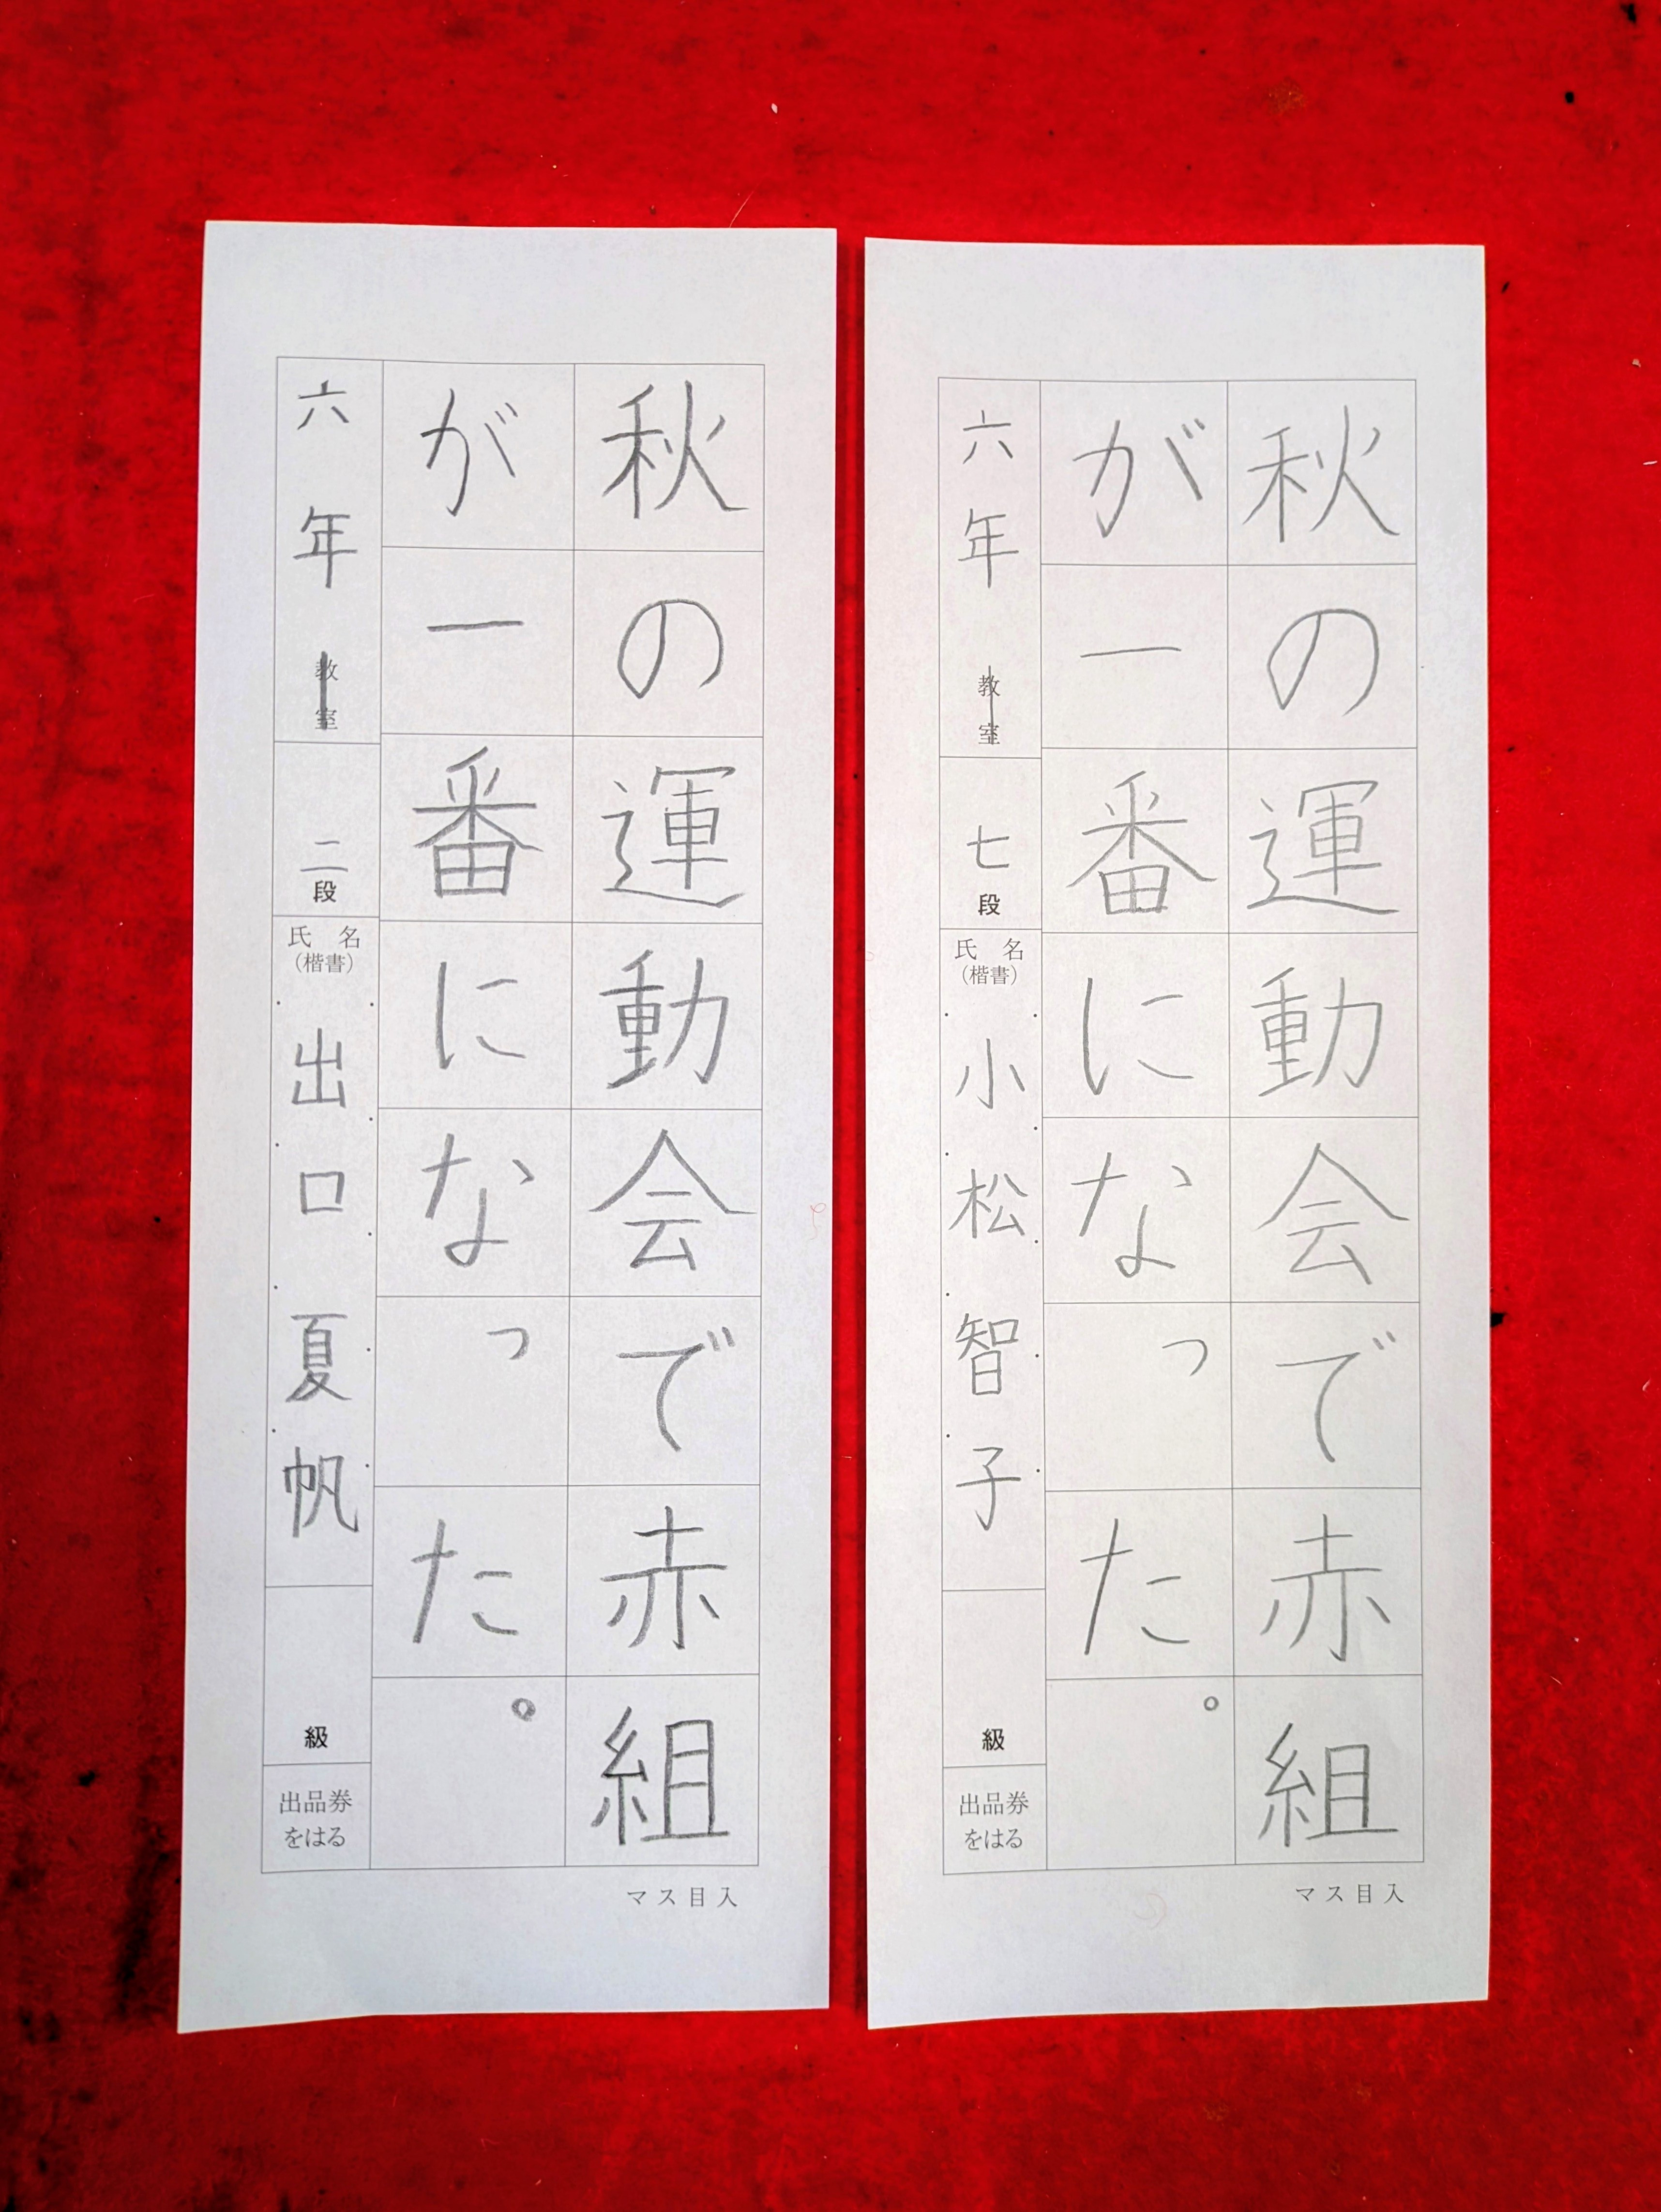 秋の運動会で赤組
が一番になった。
六年 教室
二段
氏名
(楷書)
出口夏帆
級
出品券
をはる
マス目入
秋の運動会で赤組
が一番になった。
六年 教室
七段
氏名
(楷書)
小松智子
級
出品券
をはる
マス目入